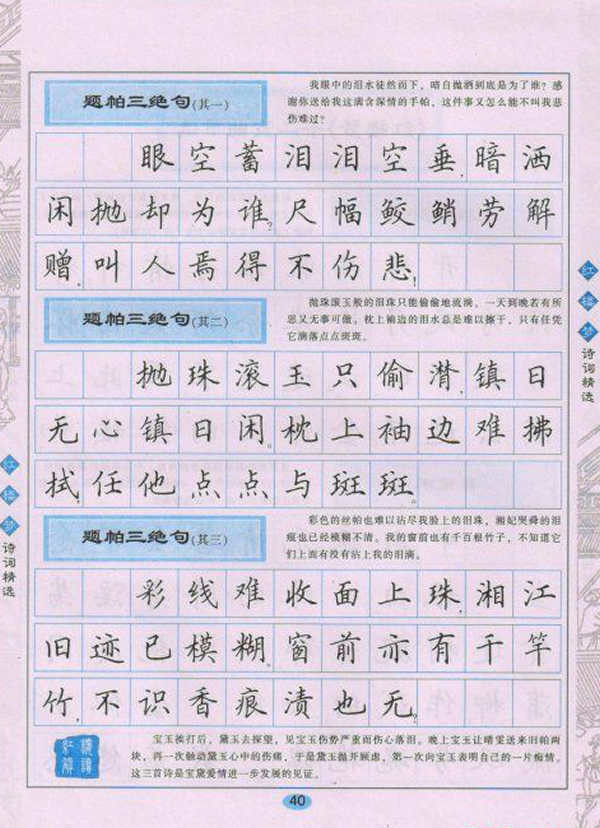 题帕三绝句(其一)
我眼中的泪水徒然而下，暗自抛洒到底是为了谁？感
谢你送给我这满含深情的手帕，这件事又怎么能不叫我悲
伤难过？
眼空蓄泪泪空垂,暗洒
闲抛却为谁?尺幅鲛鮹劳解
赠,叫人焉得不伤悲!
题帕三绝句(其二)
抛珠滚玉般的泪珠只能偷偷地流淌，一天到晚若有所
思又无事可做。枕上袖边的泪水总是难以擦干，只有任凭
它滴落点点斑斑。
抛珠滚玉只偷潸,镇日
无心镇日闲。枕上袖边难拂
拭,任他点点与斑斑。
题帕三绝句(其三)
彩色的丝帕也难以沾尽我脸上的泪珠，湘妃哭舜的泪
痕也已经模糊不清。我的窗前也有千百根竹子，不知道它
们上面有没有沾上我的泪滴。
彩线难收面上珠,湘江
旧迹已模糊。窗前亦有千竿
竹,不识香痕渍也无。
宝玉挨打后，黛玉去探望，见宝玉伤势严重而伤心落泪。晚上宝玉让晴雯送来旧帕两
块，再一次触动黛玉心中的伤痛，于是黛玉抛开顾虑，第一次向宝玉表明自己的一片痴情。
这三首诗是宝黛爱情进一步发展的见证。
40
红楼梦诗词精选
红楼梦诗词精选